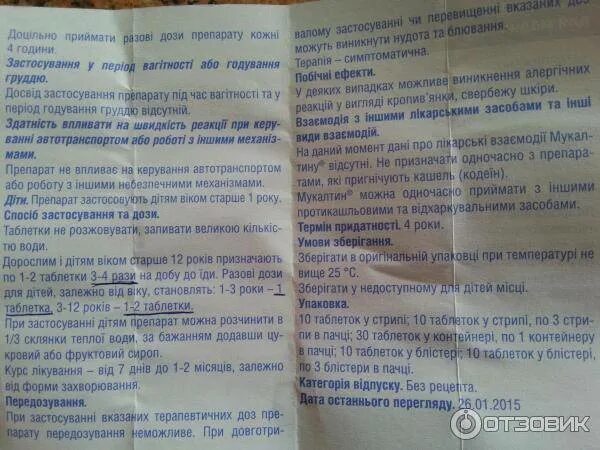 Доцільно приймати разові дози препарату кожні
4 години.
Застосування у період вагітності або годування
груддю.
Досвід застосування препарату під час вагітності та у
період годування груддю відсутній.
Здатність впливати на швидкість реакції при керу-
ванні автотранспортом або роботі з іншими механіз-
мами.
Препарат не впливає на керування автотранспортом
або роботу з іншими небезпечними механізмами.
Діти. Препарат застосовують дітям віком старше 1 року.
Спосіб застосування та дози.
Таблетки не розжовувати, запивати великою кількіс-
тю води.
Дорослим і дітям віком старше 12 років призначають
по 1-2 таблетки 3-4 рази на добу до їди. Разові дози
для дітей, залежно від віку, становлять: 1-3 роки – 1
таблетка, 3-12 років – 1-2 таблетки.
При застосуванні дітям препарат можна розчинити в
1/3 склянки теплої води, за бажанням додавши цу-
кровий або фруктовий сироп.
Курс лікування – від 7 днів до 1-2 місяців, залежно
від форми захворювання.
Передозування.
При застосуванні вказаних терапевтичних доз пре-
парату передозування неможливе. При довготри-
валому застосуванні чи перевищенні вказаних доз
можуть виникнути нудота та блювання.
Терапія – симптоматична.
Побічні ефекти.
У деяких випадках можливе виникнення алергічних
реакцій у вигляді кропив'янки, свербежу шкіри.
Взаємодія з іншими лікарськими засобами та інші
види взаємодій.
На даний момент дані про лікарські взаємодії Мукал-
тину® відсутні. Не призначати одночасно з препара-
тами, які пригнічують кашель (кодеїн).
Мукалтин® можна одночасно приймати з іншими
протикашльовими та відхаркувальними засобами.
Термін придатності. 4 роки.
Умови зберігання.
Зберігати в оригінальній упаковці при температурі не
вище 25 °С.
Зберігати у недоступному для дітей місці.
Упаковка.
10 таблеток у стрипі; 10 таблеток у стрипі, по 3 стри-
пи в пачці; 30 таблеток у контейнері, по 1 контейнеру
в пачці; 10 таблеток у блістері; 10 таблеток у блістері,
по 3 блістери в пачці.
Категорія відпуску. Без рецепта.
Дата останнього перегляду. 26.01.2015
ОТЗОВИК